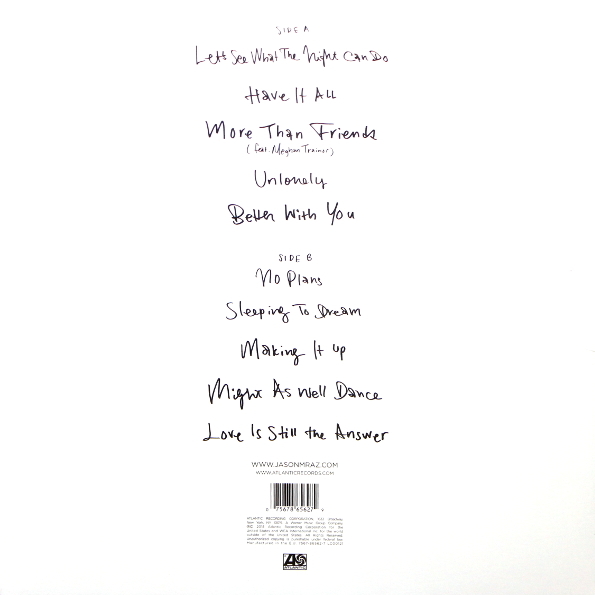 SIDE A
Let's See What The Night Can Do
Have It All
More Than Friends
(feat. Meghan Trainor)
Unlonely
Better With You
SIDE B
No Plans
Sleeping To Dream
Making It Up
Might As Well Dance
Love Is Still the Answer
WWW.JASONMRAZ.COM
WWW.ATLANTICRECORDS.COM
0 75678 65627 9
ATLANTIC